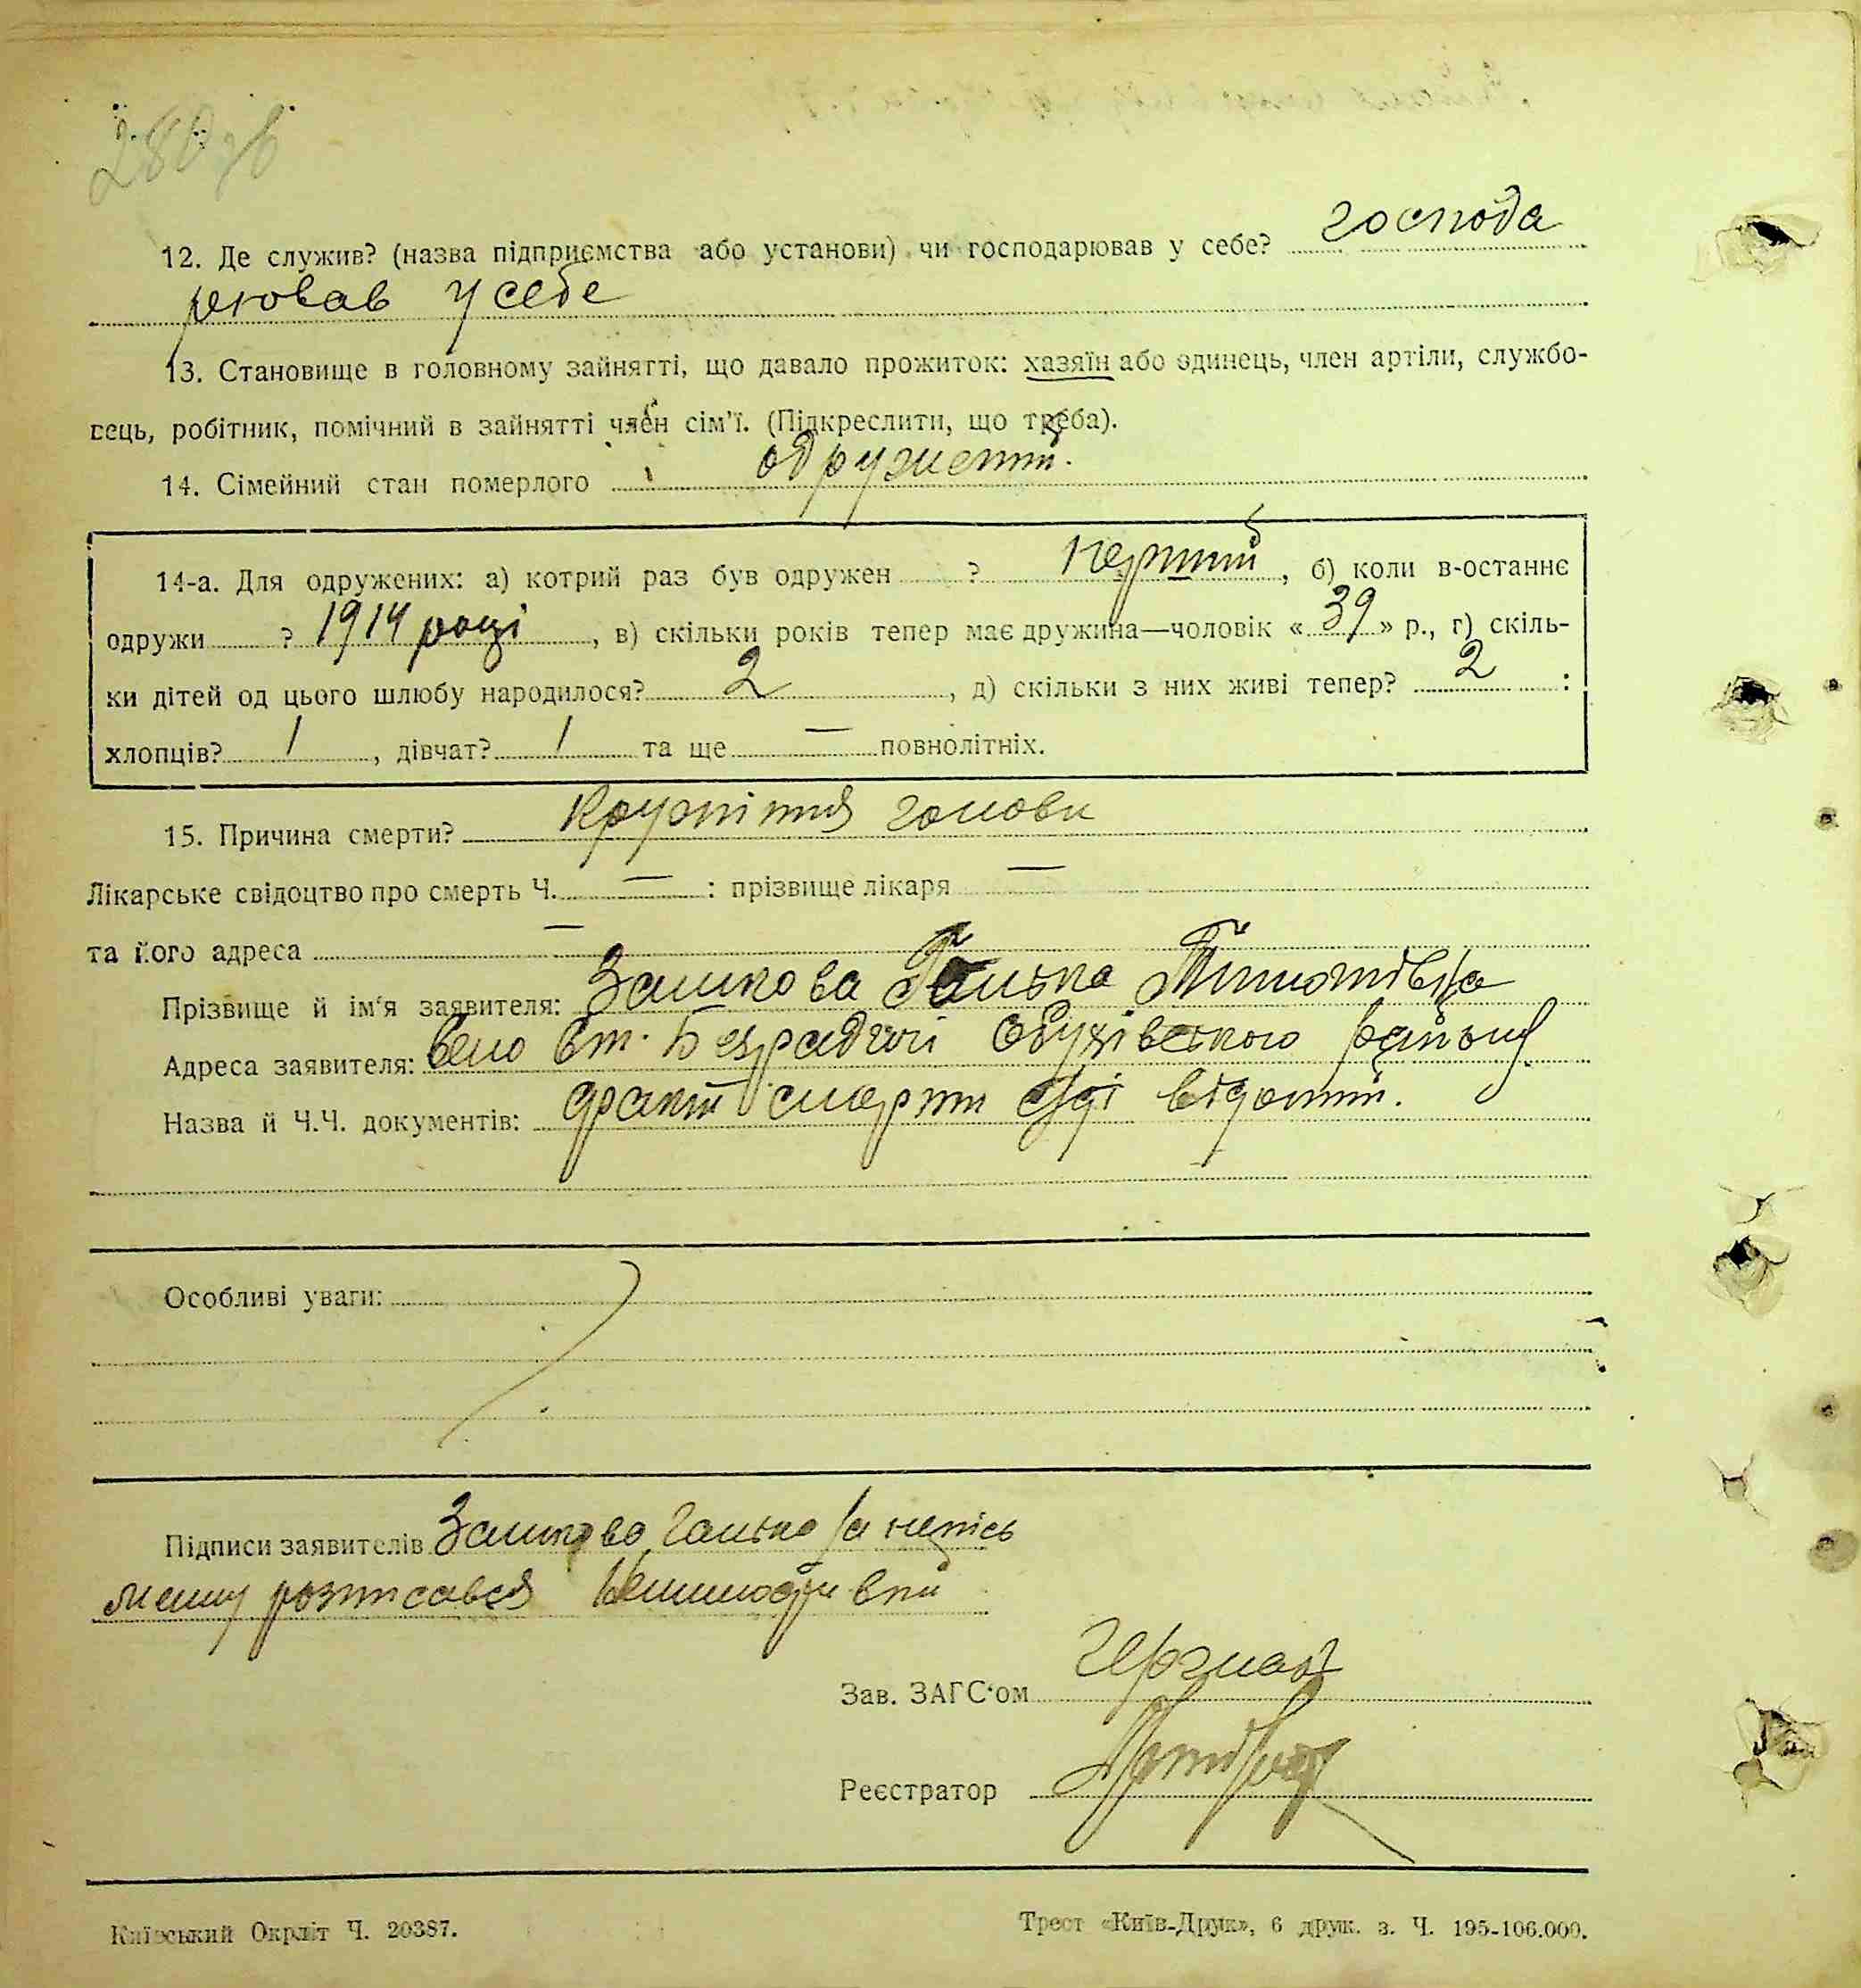 280 зв
12. Де служив? (назва підприємства або установи) чи господарював у себе? господа
рював у себе
13. Становище в головному зайнятті, що давало прожиток: хазяїн або одинець, член артіли, службо-
вець, робітник, помічний в зайнятті член сім'ї. (Підкреслити, що треба).
14. Сімейний стан померлого одружений.
14-а. Для одружених: а) котрий раз був одружен ? Перший, б) коли в-останнє
одружи ? 1914 році, в) скільки років тепер має дружина—чоловік «39» р., г) скіль-
ки дітей од цього шлюбу народилося? 2, д) скільки з них живі тепер? 2:
хлопців? 1, дівчат? 1 та ще — повнолітніх.
15. Причина смерти? голови
Лікарське свідоцтво про смерть Ч. — : прізвище лікаря —
та його адреса —
Прізвище й ім'я заявителя: Ганька
Адреса заявителя: село Вт. Безрадичі Обухівського району
Назва й Ч.Ч. документів: факт смерти с/ді відомий.
Особливі уваги:
Підписи заявителів Ганька а непись
менну розписався
Зав. ЗАГС'ом
Реєстратор
Київський Окрліт Ч. 20387.
Трест «Київ-Друк», 6 друк. з. Ч. 195-106.000.